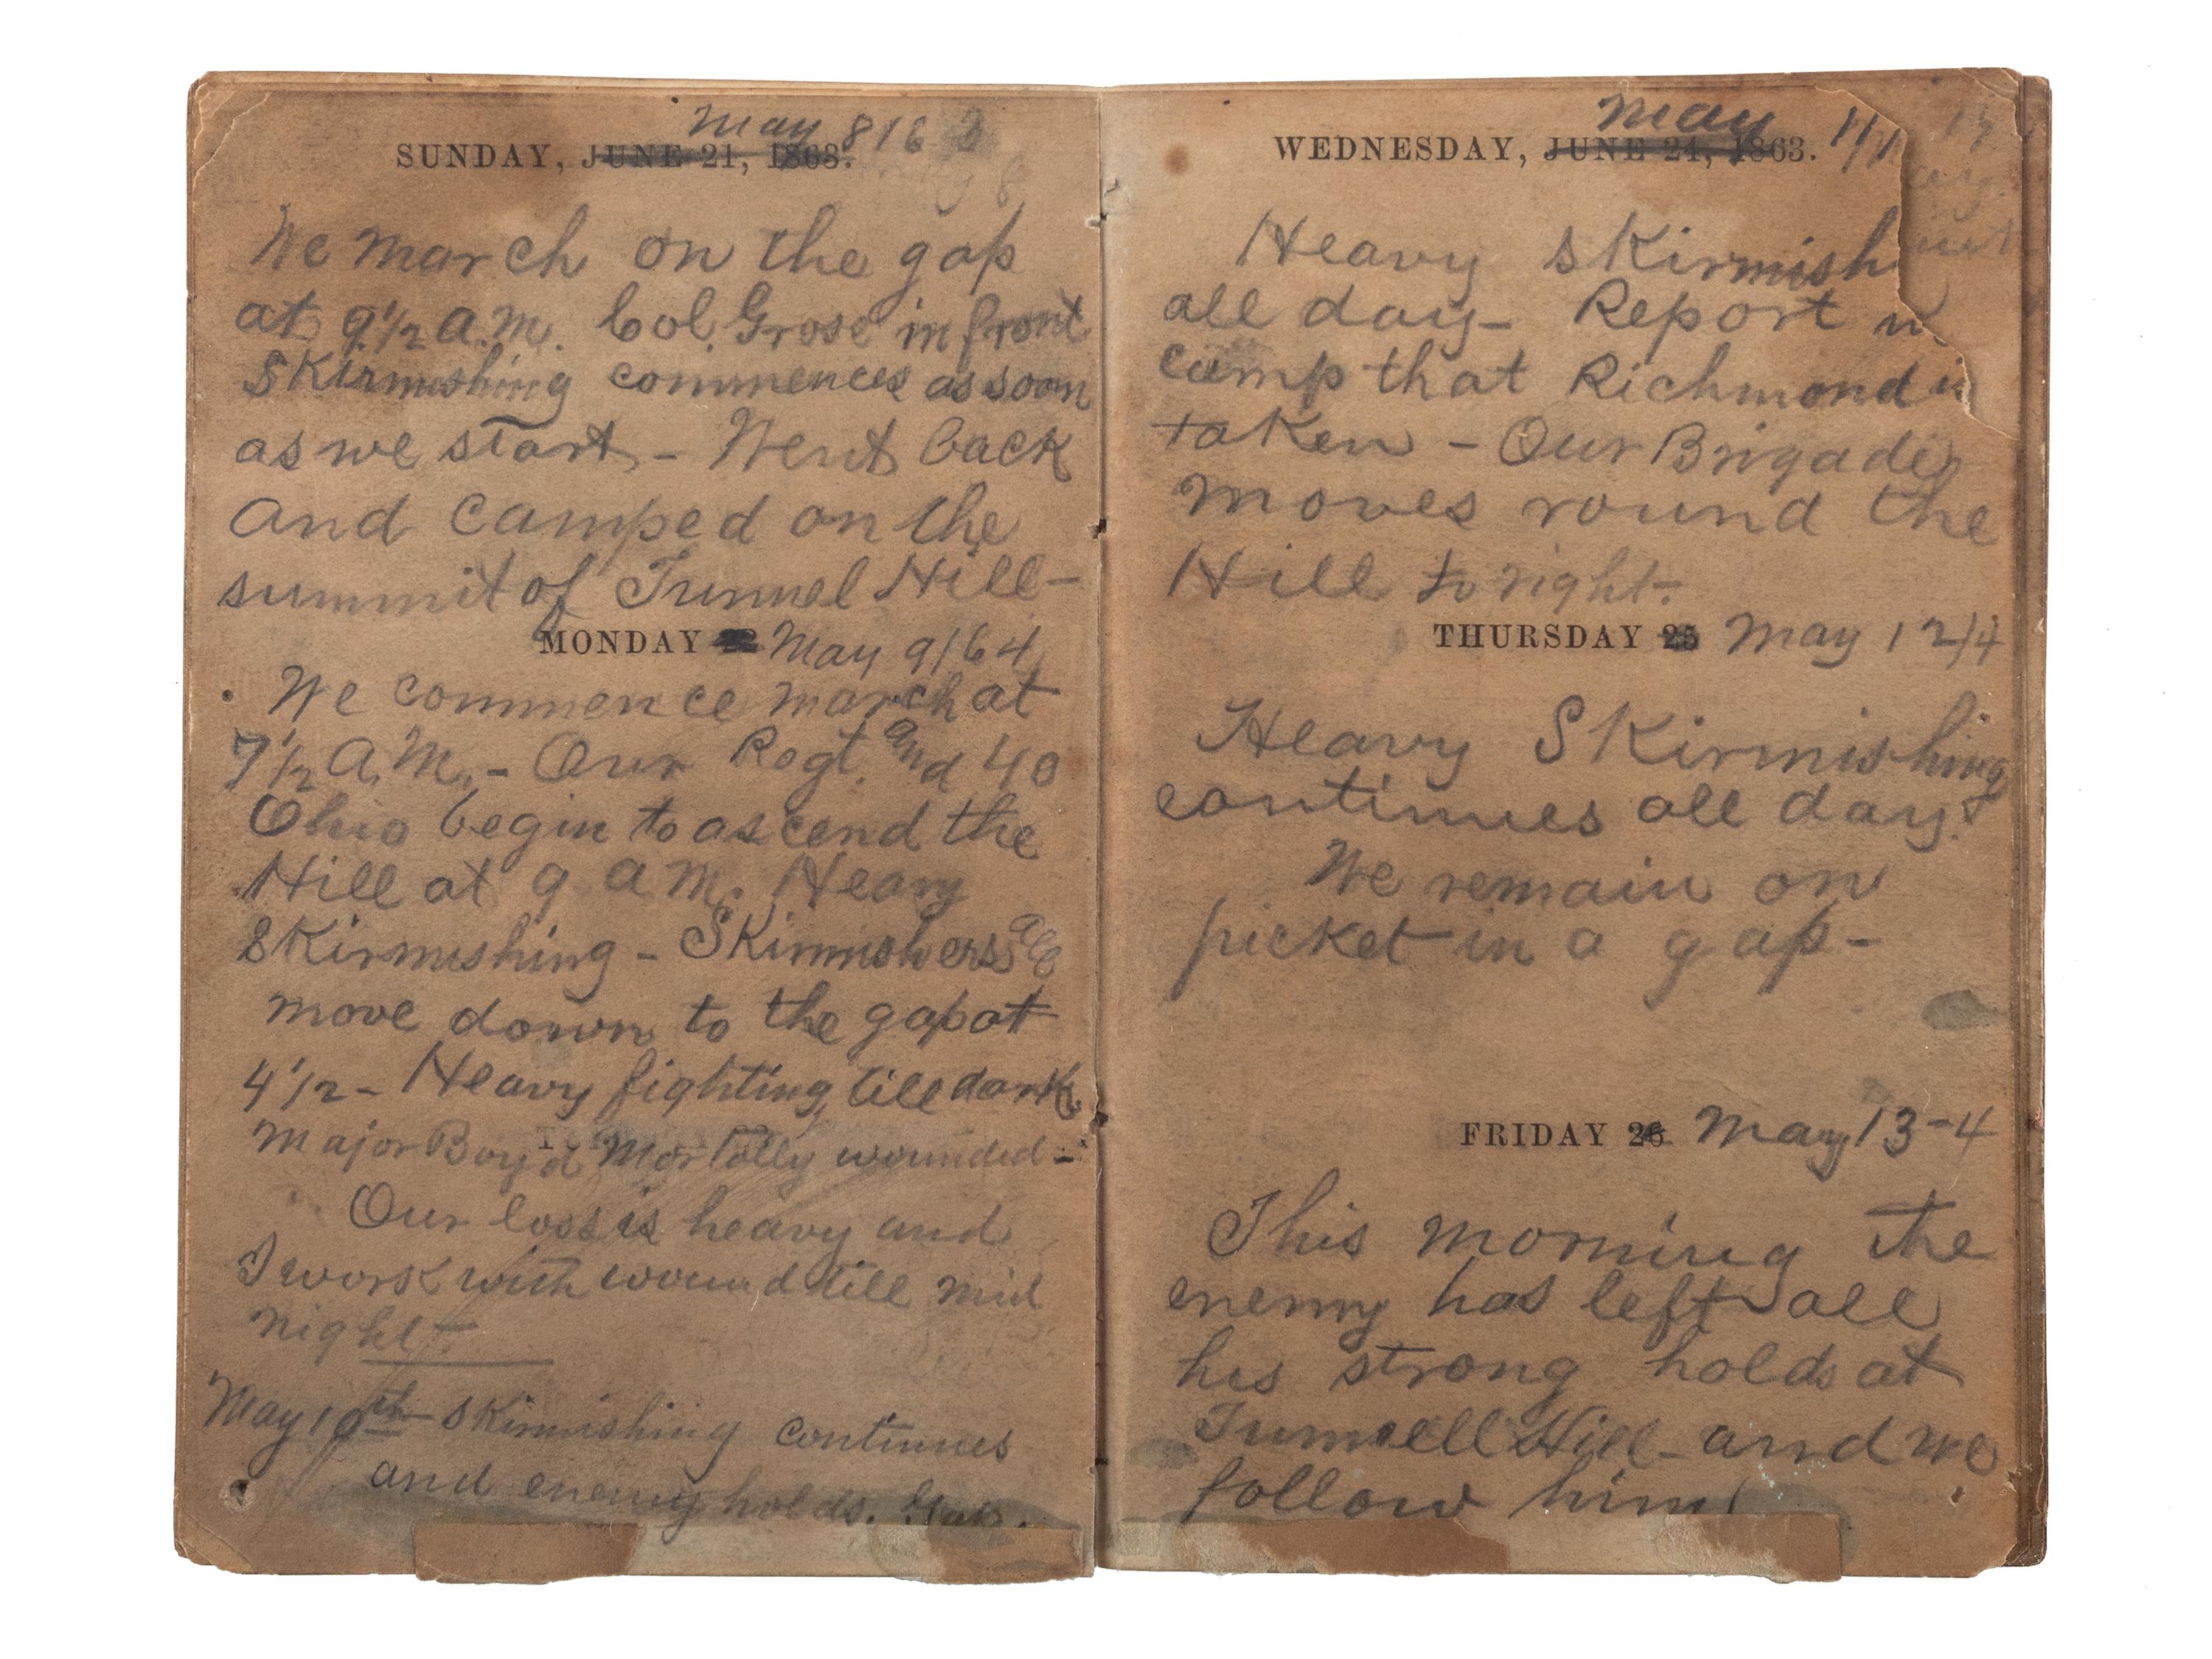 May 8/6
SUNDAY, JUNE 21, 1863.
We march on the gap
at 9 1/2 a.m. Col. Grose in front
Skirmishing commences as soon
as we start - Went back
and camped on the
summit of Tunnel Hill -
MONDAY 22 May 9/64
We commence march at
7 1/2 A.M. - Our Regt. and 40
Ohio begin to ascend the
Hill at 9 a m. Heavy
Skirmishing - Skirmishers all
move down to the gap at
4 1/2 - Heavy fighting till dark.
Major Boyd Mortally wounded -
Our loss is heavy and
I work with wound till mid
night.
May 10th - Skirmishing continues
and enemy holds. Gap.
May 11/
WEDNESDAY, JUNE 24, 1863.
Heavy skirmish
all day - Report in
camp that Richmond is
taken - Our Brigade
moves round the
Hill to right.
THURSDAY 25 May 12/4
Heavy Skirmishing
continues all day.
We remain on
picket in a gap -
FRIDAY 26 May 13-4
This morning the
enemy has left all
his strong holds at
Tunnell Hill - and we
follow him